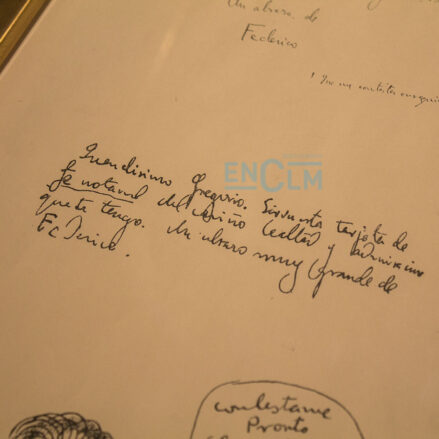 Un abrazo de
Federico
Queridisimo Gregorio. Sirva esta tarjeta de
fe notarial del cariño lealtad y admiracion
que te tengo. Un abrazo muy grande de
Federico.
ENCLM
contestame
Pronto